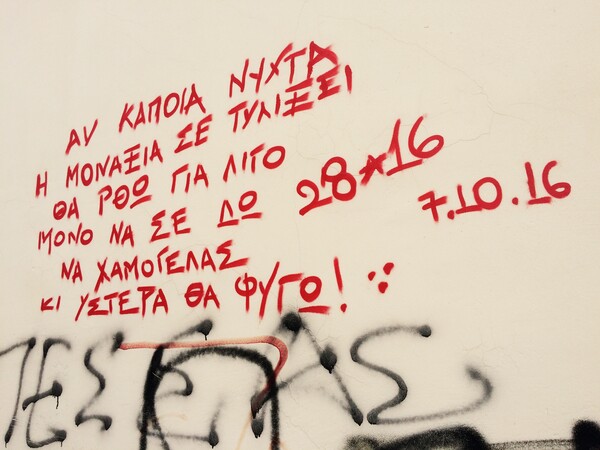 ΑΝ ΚΑΠΟΙΑ ΝΥΧΤΑ
Η ΜΟΝΑΞΙΑ ΣΕ ΤΥΛΙΞΕΙ
ΘΑ ΡΘΩ ΓΙΑ ΛΙΓΟ
ΜΟΝΟ ΝΑ ΣΕ ΔΩ
ΝΑ ΧΑΜΟΓΕΛΑΣ
ΚΙ ΥΣΤΕΡΑ ΘΑ ΦΥΓΩ!
28*16
7.10.16